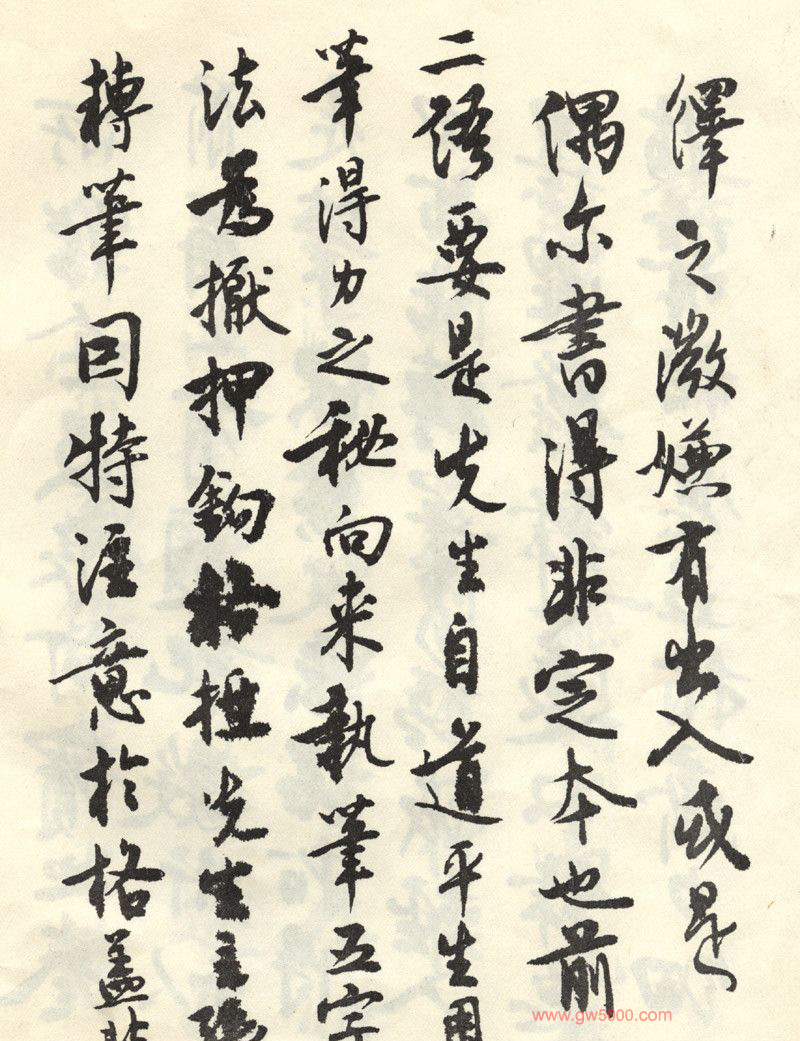 繹之微嫌有出入或是
偶尔書得非定本也前
二語要是先生自道平生用
筆得力之秘向来執筆五字
法為擫押鈎格抵先生主張
轉筆因特注意於格蓋非
www.gw5000.com